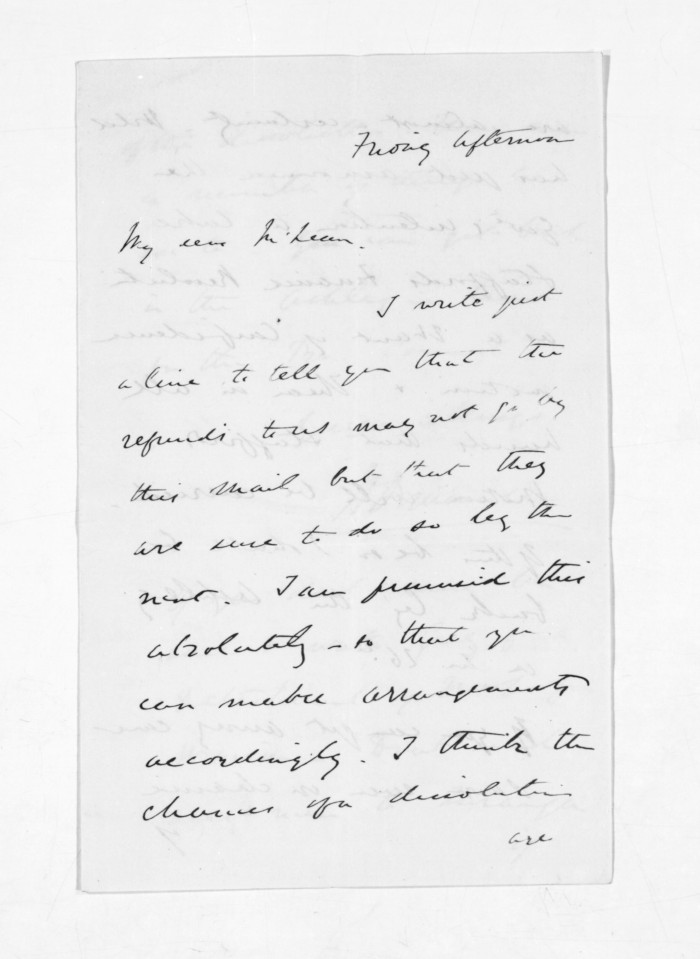 Friday Afternoon
My dear McLean.
I write just
a line to tell you that the
refunds to us may not go by
this mail but that they
are sure to do so by the
next. I am promised this
absolutely - so that you
can make arrangements
accordingly. I think the
chances of a dissolution
are